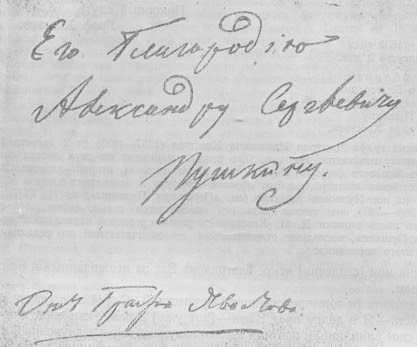 Его Благородію
Александру Сергѣевичу
Пушкину.
Отъ Графа Хвостова.